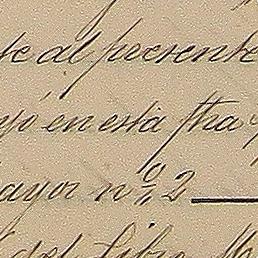 te al presente
yó en esta fha
ayor nº 2
del Libro